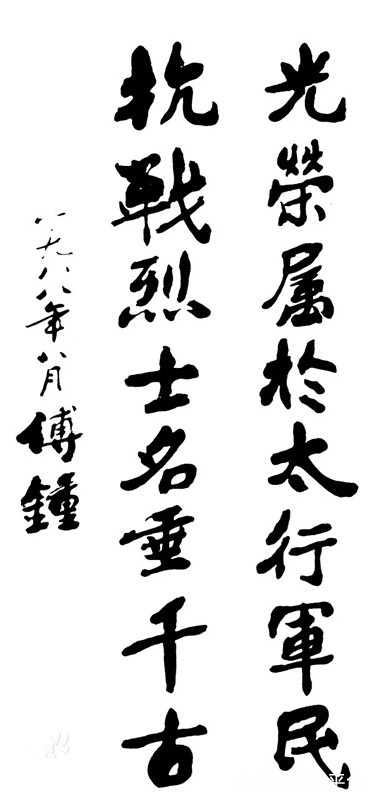 光榮属於太行軍民
抗戰烈士名垂千古
一九八八年八月傅鍾